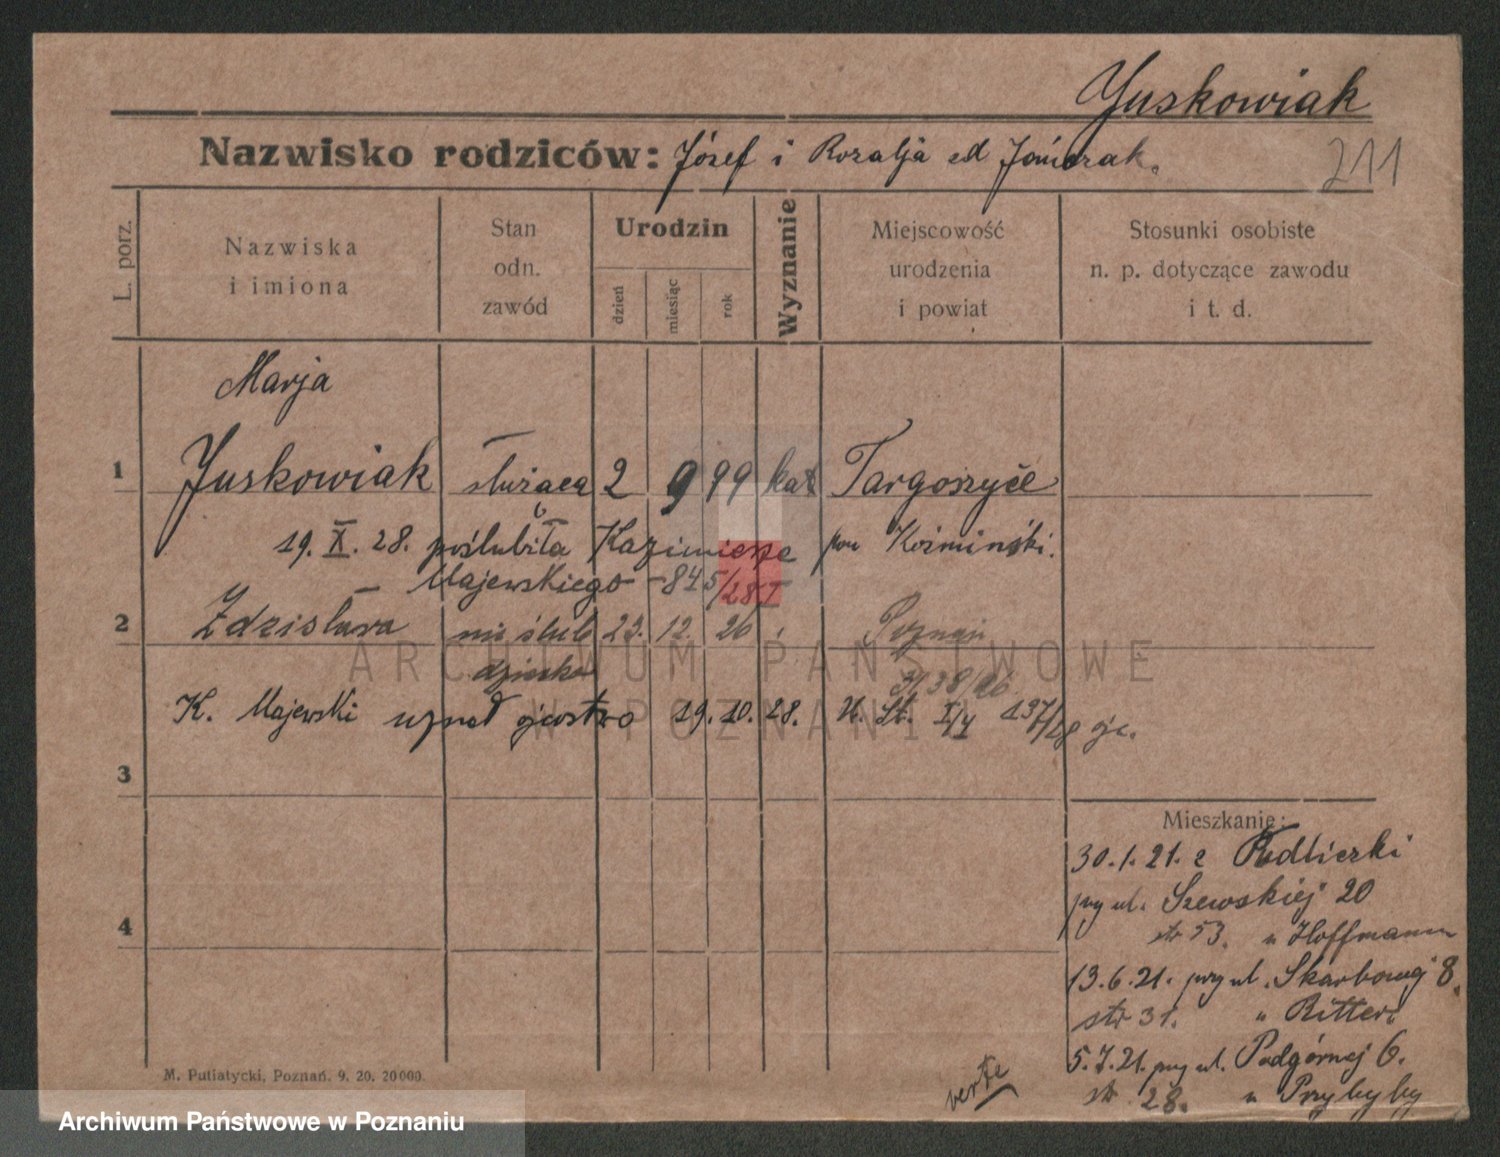 Juskowiak
Nazwisko rodziców: Józef i Rozalja
211
L. porz.
Nazwiska
i imiona
Stan
odn.
zawód
Urodzin
dzień
miesiąc
rok
Wyznanie
Miejscowość
urodzenia
i powiat
Stosunki osobiste
n. p. dotyczące zawodu
i t. d.
Marja
1 Juskowiak służąca 2 9 99 kat Targoszyce
19. X. 28. poślubiła Kazimierza pow Koźmiński.
Majewskiego - 845/28 I
2 Zdzisława nieślub 23. 12. 26 Poznań
dziecko
K. Majewski uznał ojcostwo 19. 10. 28. 137/28
3
4
Mieszkanie:
30.1.21. z Redliczki
przy ul. Szewskiej 20
str 53. u Hoffmann
13.6.21. przy ul. Skarbowej 8.
str 31. u Ritter
5.7.21. przy ul. Podgórnej 6.
str 28. u Przybyły
verte
M. Putiatycki, Poznań. 9. 20. 20000.
ARCHIWUM PAŃSTWOWE
W POZNANIU
Archiwum Państwowe w Poznaniu